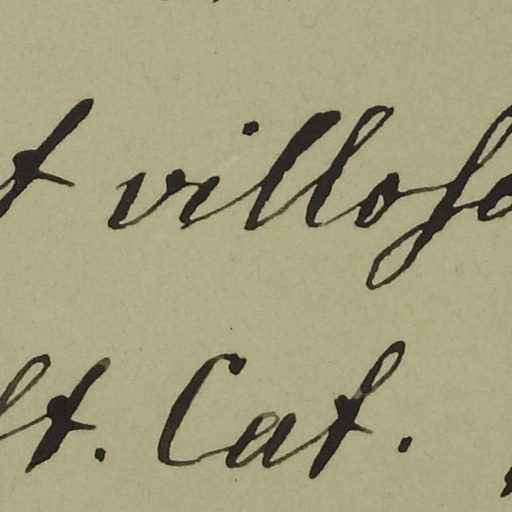 t villosa
lt. Cat.